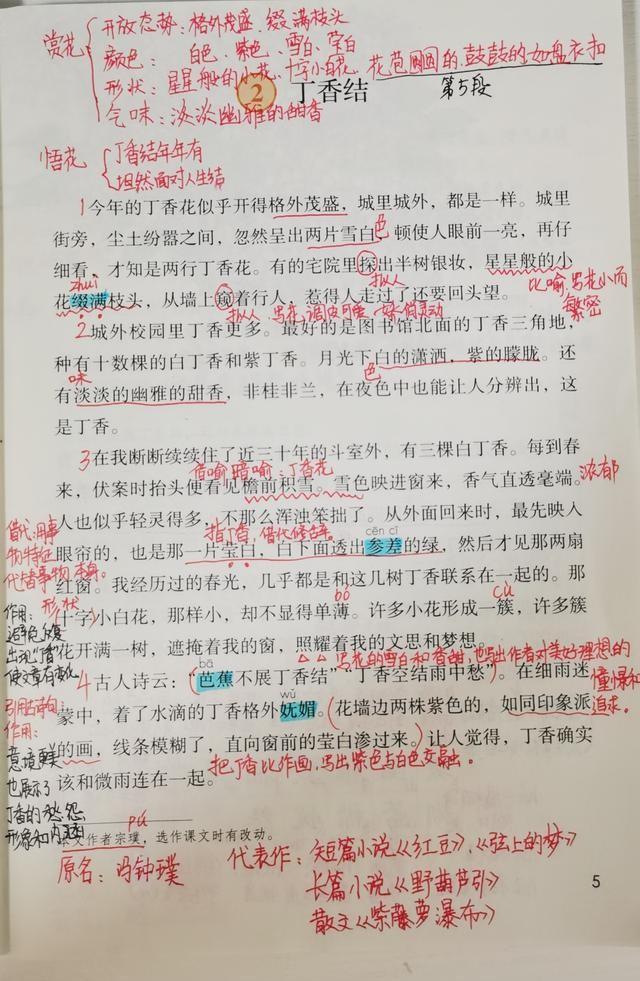 赏花
开放态势：格外茂盛、缀满枝头
颜色：白色、紫色、雪白、莹白
形状：星星般的小花、十字小白花、花苞圆圆的、鼓鼓的、如盘衣扣
气味：淡淡幽雅的甜香
第5段
2 丁香结
悟花
丁香结年年有
坦然面对人生结
1今年的丁香花似乎开得格外茂盛，城里城外，都是一样。城里
色
街旁，尘土纷嚣之间，忽然呈出两片雪白，顿使人眼前一亮，再仔
细看，才知是两行丁香花。有的宅院里探出半树银妆，星星般的小
zhuì
拟人
比喻，写花小而繁密
花缀满枝头，从墙上窥着行人，惹得人走过了还要回头望。
拟人
2城外校园里丁香更多。最好的是图书馆北面的丁香三角地，
种有十数棵的白丁香和紫丁香。月光下白的潇洒，紫的朦胧。还
味
色
有淡淡的幽雅的甜香，非桂非兰，在夜色中也能让人分辨出，这
是丁香。
3在我断断续续住了近三十年的斗室外，有三棵白丁香。每到春
借喻暗喻：丁香花
来，伏案时抬头便看见檐前积雪。雪色映进窗来，香气直透毫端。
浓郁
人也似乎轻灵得多，不那么浑浊笨拙了。从外面回来时，最先映入
借代：用事物特征代替事物本身。
指丁香，借代修辞
cēn cī
眼帘的，也是那一片莹白，白下面透出参差的绿，然后才见那两扇
红窗。我经历过的春光，几乎都是和这几树丁香联系在一起的。那
形状
bó
cù
十字小白花，那样小，却不显得单薄。许多小花形成一簇，许多簇
作用：避免反复出现“香”使文章有变化
花开满一树，遮掩着我的窗，照耀着我的文思和梦想。
写花的雪白和香甜，也写出作者对美好理想的憧憬和追求。
bā
4古人诗云：“芭蕉不展丁香结”“丁香空结雨中愁”。在细雨迷
wǔ
蒙中，着了水滴的丁香格外妩媚。花墙边两株紫色的，如同印象派
引用古诗的作用：
的画，线条模糊了，直向窗前的莹白渗过来。让人觉得，丁香确实
把丁香比作画，写出紫色与白色交融。
该和微雨连在一起。
也展示了丁香的愁怨形象和内涵
pú
本文作者宗璞，选作课文时有改动。
原名：冯钟璞
代表作：短篇小说《红豆》、《弦上的梦》
长篇小说《野葫芦引》
散文《紫藤萝瀑布》
5